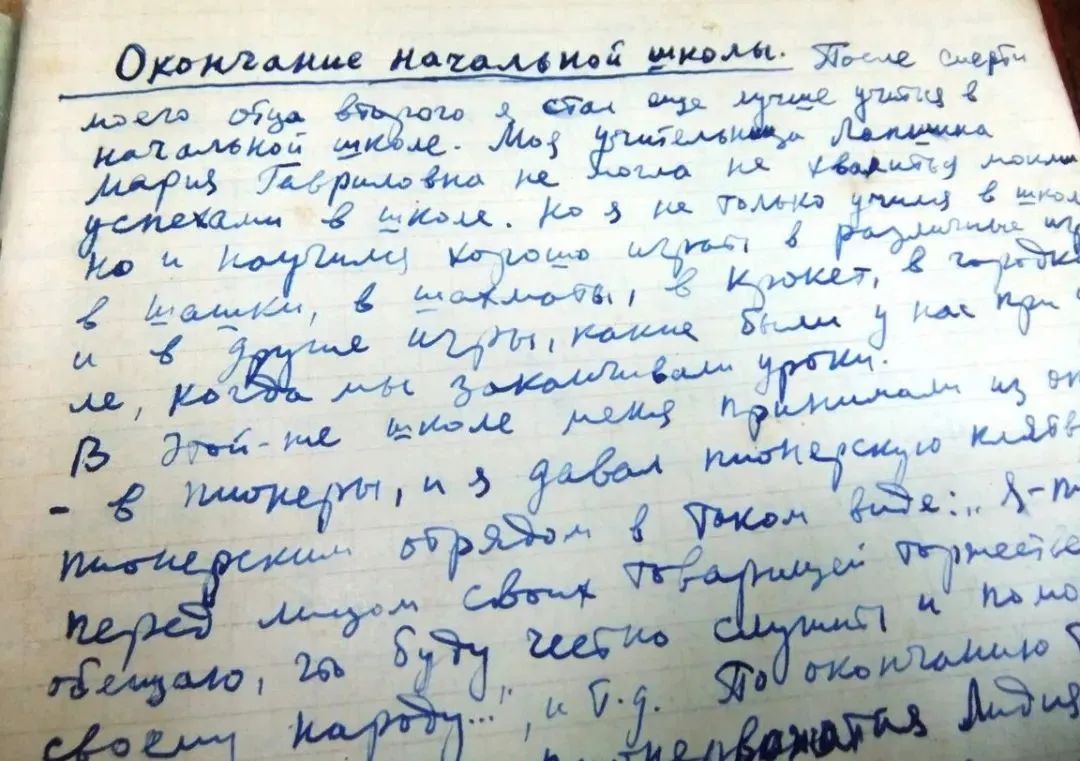 Окончание начальной школы. После смерти
моего отца второго я стал еще лучше учиться в
начальной школе. Моя учительница Лапшина
Мария Гавриловна не могла не хвалиться моими
успехами в школе. Но я не только учился в школе
но и научился хорошо играть в различные игры
в шашки, в шахматы, в крокет, в городки
и в другие игры, какие были у нас при
ле, когда мы заканчивали уроки.
В этой-же школе меня принимали из ок
- в пионеры, и я давал пионерскую клятв
пионерским отрядом в таком виде: „Я-пи
перед лицом своих товарищей торжестве
обещаю, что буду честно служить и помо
своему народу...", и т.д. По окончанию
пионервожатая Лидия